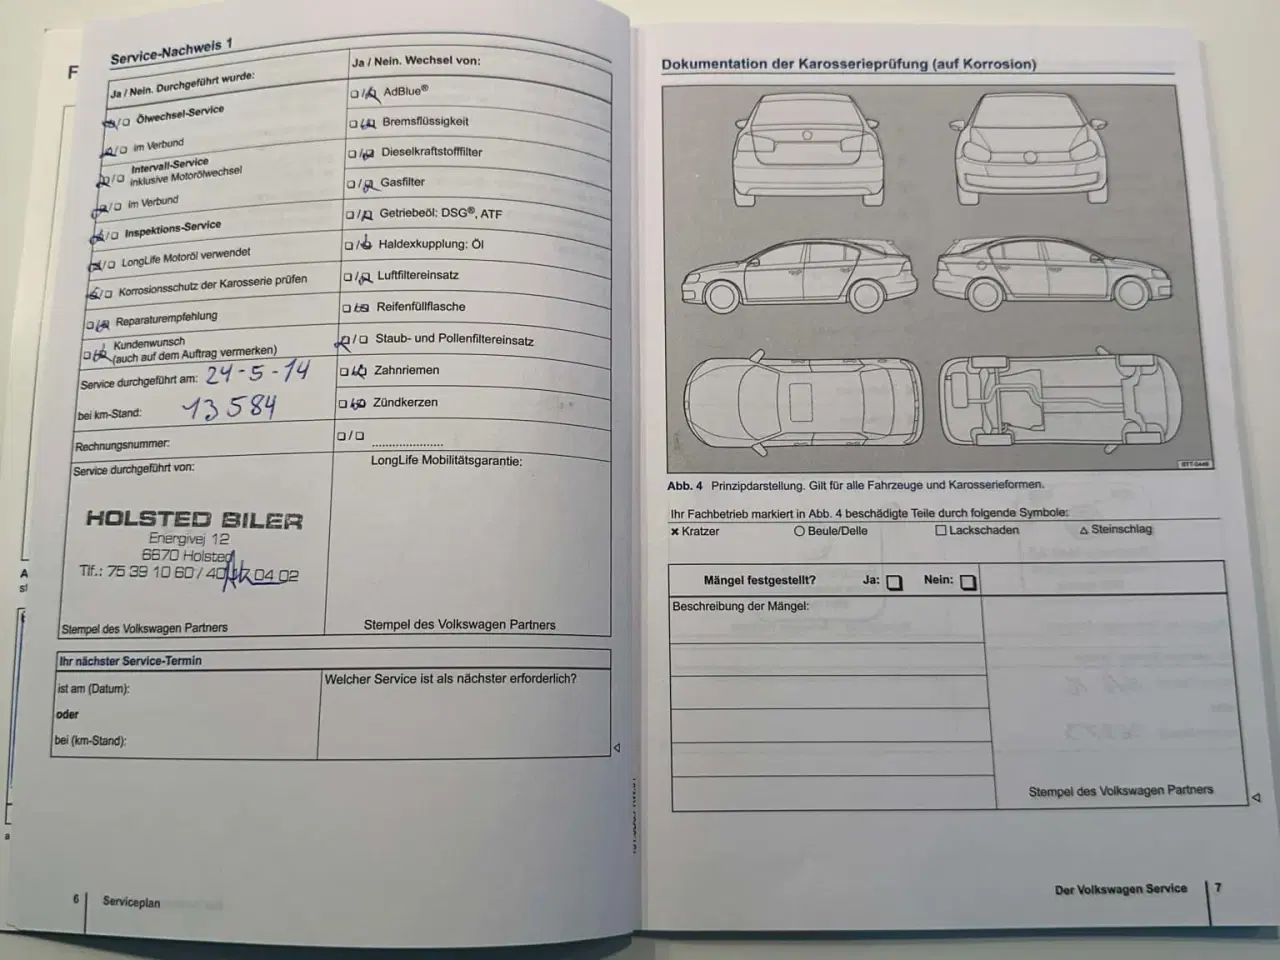 Service-Nachweis 1
Ja / Nein. Durchgeführt wurde:
Ölwechsel-Service
im Verbund
Intervall-Service
inklusive Motorölwechsel
im Verbund
Inspektions-Service
LongLife Motoröl verwendet
Korrosionsschutz der Karosserie prüfen
Reparaturempfehlung
Kundenwunsch
(auch auf dem Auftrag vermerken)
Service durchgeführt am: 24-5-14
bei km-Stand: 13584
Rechnungsnummer:
Service durchgeführt von:
HOLSTED BILER
Energivej 12
6670 Holsted
Tlf.: 75 39 10 60 / 40 04 02
Stempel des Volkswagen Partners
Ja / Nein. Wechsel von:
AdBlue®
Bremsflüssigkeit
Dieselkraftstofffilter
Gasfilter
Getriebeöl: DSG®, ATF
Haldexkupplung: Öl
Luftfiltereinsatz
Reifenfüllflasche
Staub- und Pollenfiltereinsatz
Zahnriemen
Zündkerzen
LongLife Mobilitätsgarantie:
Stempel des Volkswagen Partners
Ihr nächster Service-Termin
ist am (Datum):
oder
bei (km-Stand):
Welcher Service ist als nächster erforderlich?
6 Serviceplan
Dokumentation der Karosserieprüfung (auf Korrosion)
Abb. 4 Prinzipdarstellung. Gilt für alle Fahrzeuge und Karosserieformen.
Ihr Fachbetrieb markiert in Abb. 4 beschädigte Teile durch folgende Symbole:
Kratzer Beule/Delle Lackschaden Steinschlag
Mängel festgestellt? Ja: Nein:
Beschreibung der Mängel:
Stempel des Volkswagen Partners
Der Volkswagen Service 7